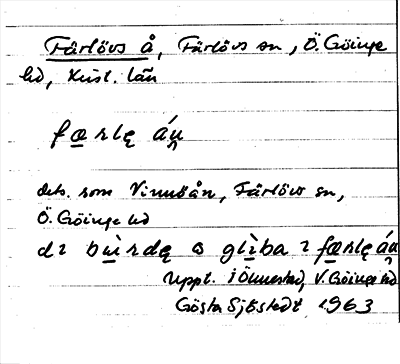 Färlövs å, Färlövs sn, Ö. Göinge
hd, Krist. län
færlę áu̯
dets. som Vinnöån, Färlövs sn,
Ö. Göinge hd
Uppt. i Önnestad, V. Göinge hd
Gösta Sjöstedt 1963